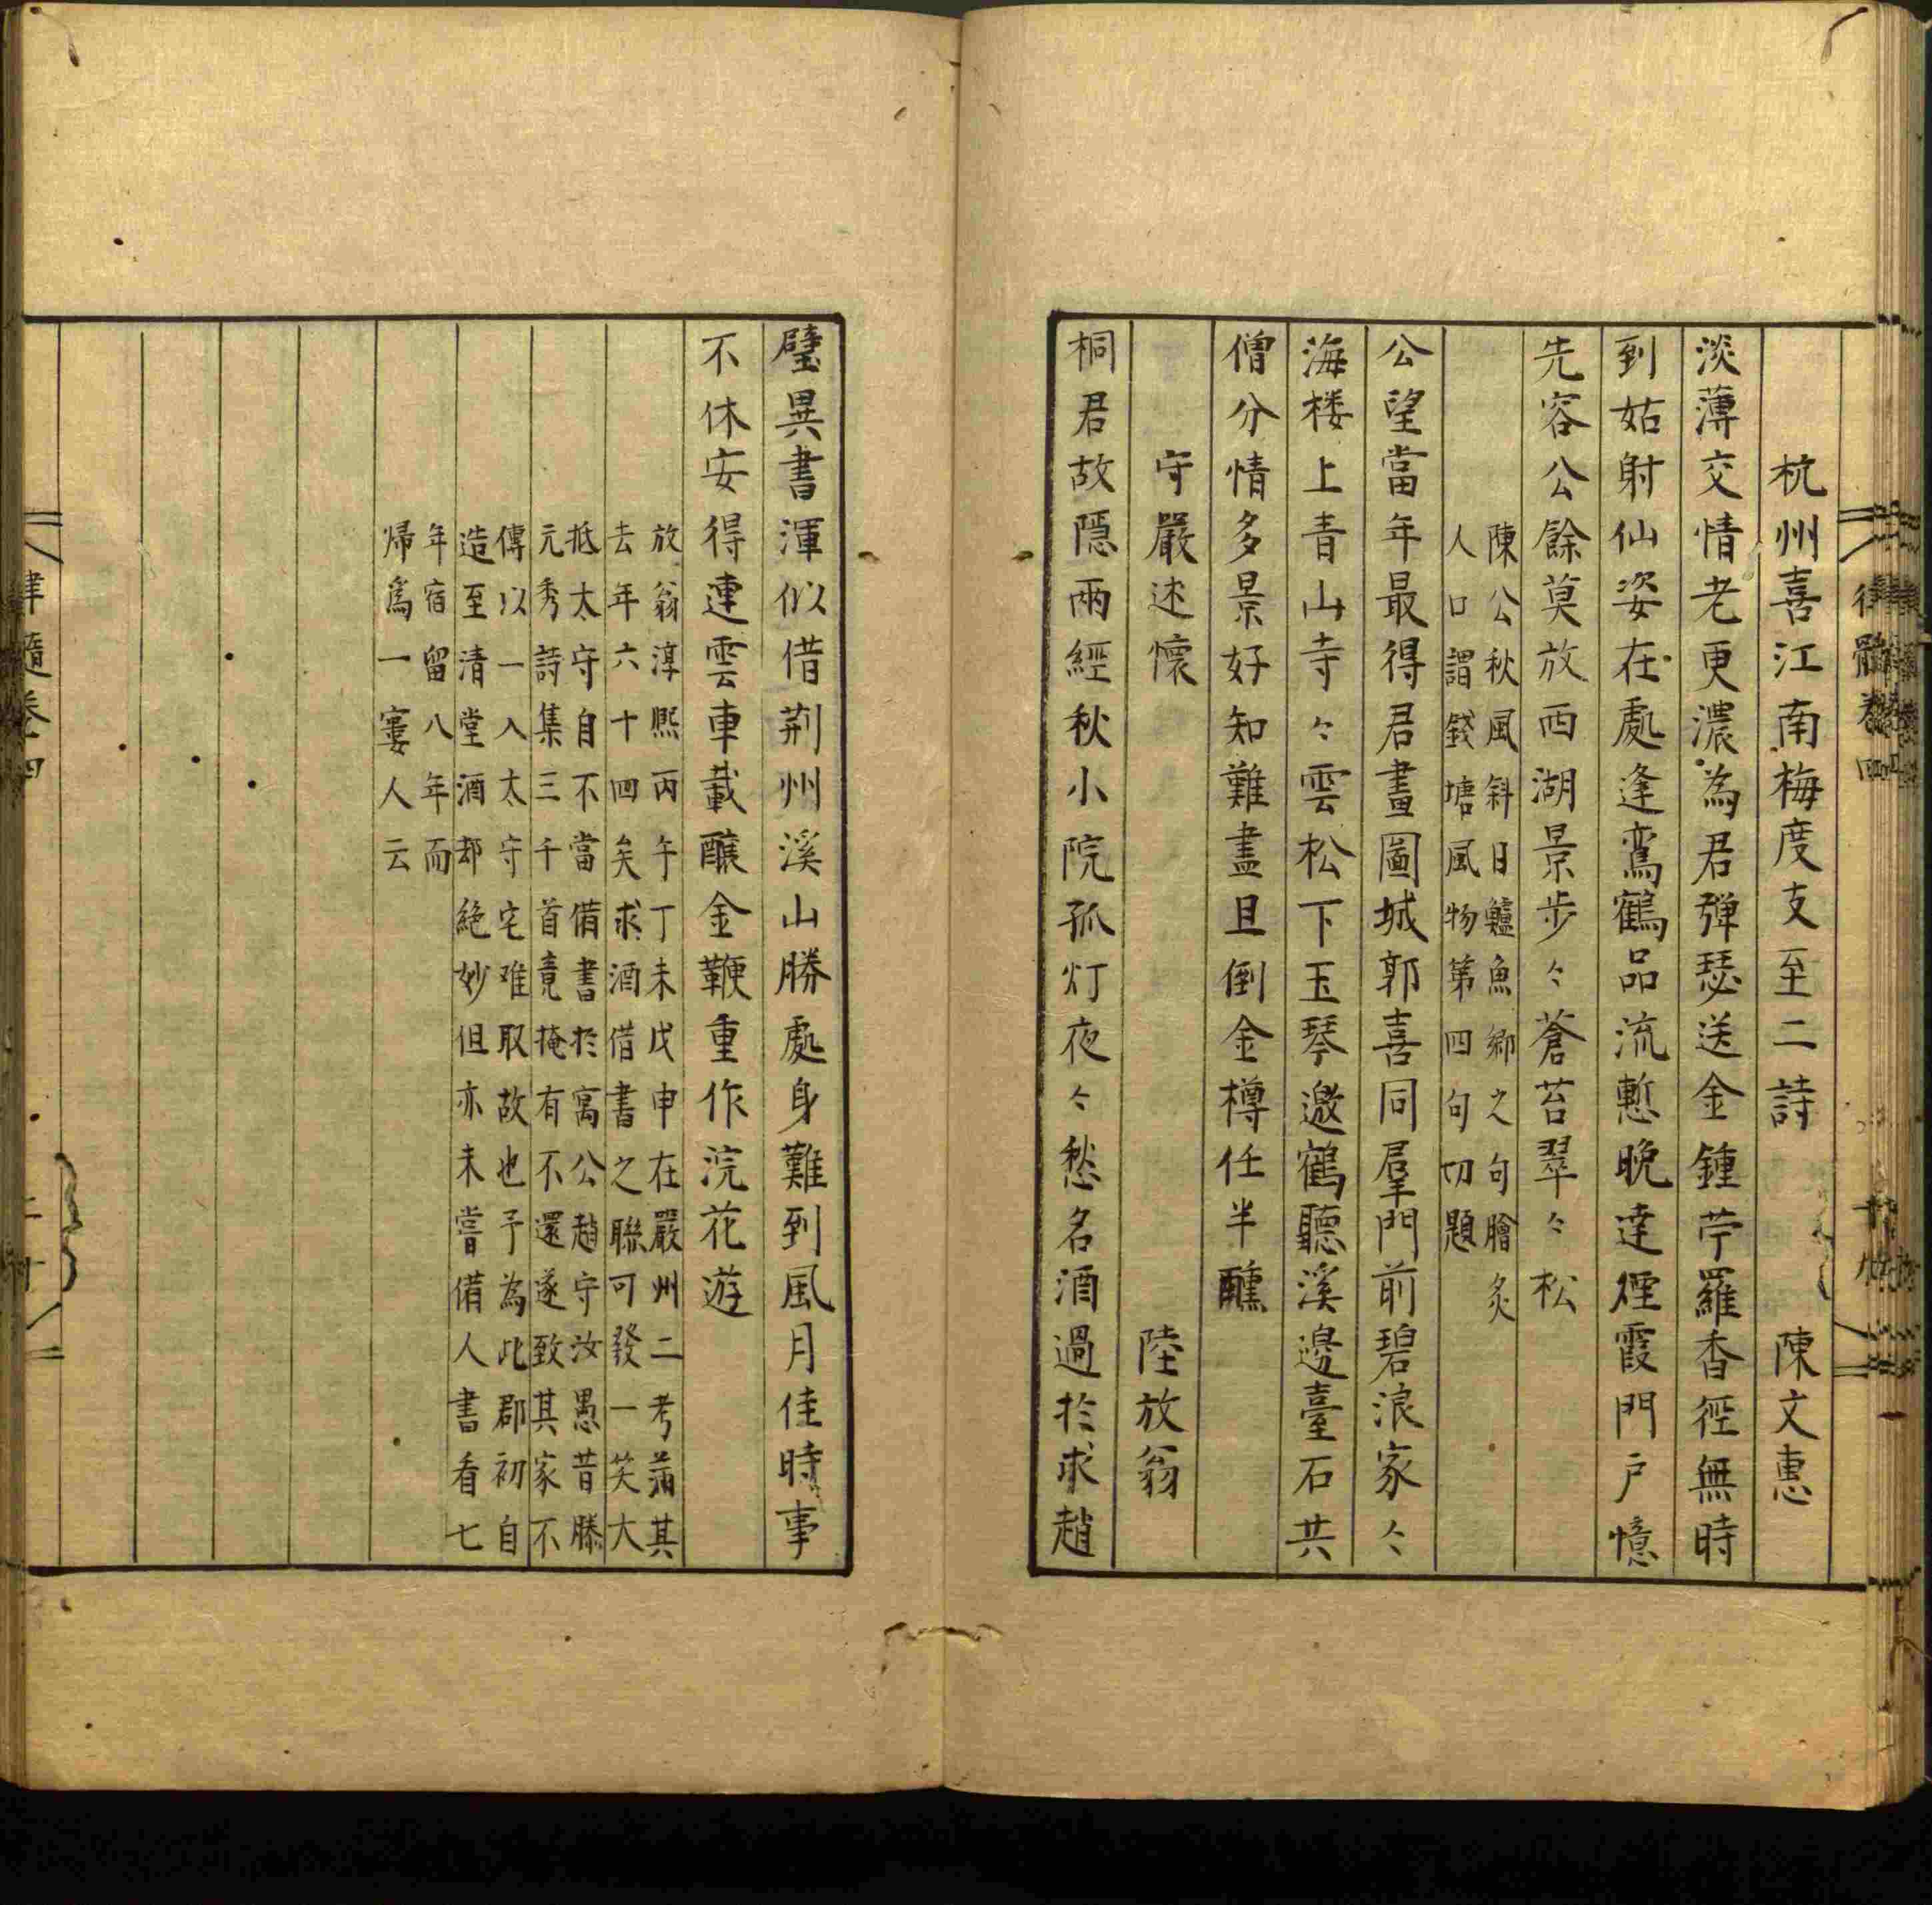 杭州喜江南梅度支至二詩 陳文惠
淡薄交情老更濃為君彈瑟送金鍾苧羅香徑無時
到姑射仙姿在處逢鸞鶴品流慙晚達煙霞門戶憶
先容公餘莫放西湖景步々蒼苔翠々松
陳公秋風斜日鱸魚鄉之句膾炙
人口謂錢塘風物第四句切題
公望當年最得君畫圖城郭喜同羣門前碧浪家々
海楼上青山寺々雲松下玉琴邀鶴聽溪邊臺石共
僧分情多景好知難盡且倒金樽任半醺
守嚴述懷 陸放翁
桐君故隱兩經秋小院孤灯夜々愁名酒過於求趙
璧異書渾似借荆州溪山勝處身難到風月佳時事
不休安得連雲車載釀金鞭重作浣花遊
放翁淳熙丙午丁未戊申在嚴州二考蒲其
去年六十四矣求酒借書之聯可發一笑大
抵太守自不當備書於寓公趙守汝愚昔滕
元秀詩集三千首竟掩有不還遂致其家不
傳以一入太守宅难取故也予為此郡初自
造至清堂酒却絶妙但亦未嘗備人書看七
年宿留八年而
帰爲一寠人云
律髓卷四
二十